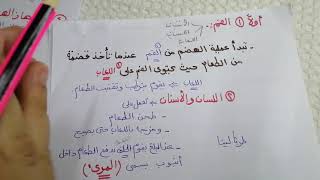 أولاً ① الفم :..
الأسنان
اللسان
اللعاب
- تبدأ عملية الهضم من الفم عندما تأخذ قضمة
من الطعام حيث يحتوي الفم على ① اللعاب
اللعاب يقوم بترطيب وتفتيت الطعام
② اللسان والأسنان تعمل على
- طحن الطعام
- ومزجه باللعاب حتى يصبح
- عند البلع يقوم بدفع الطعام داخل
أنبوب يسمى (المريء)